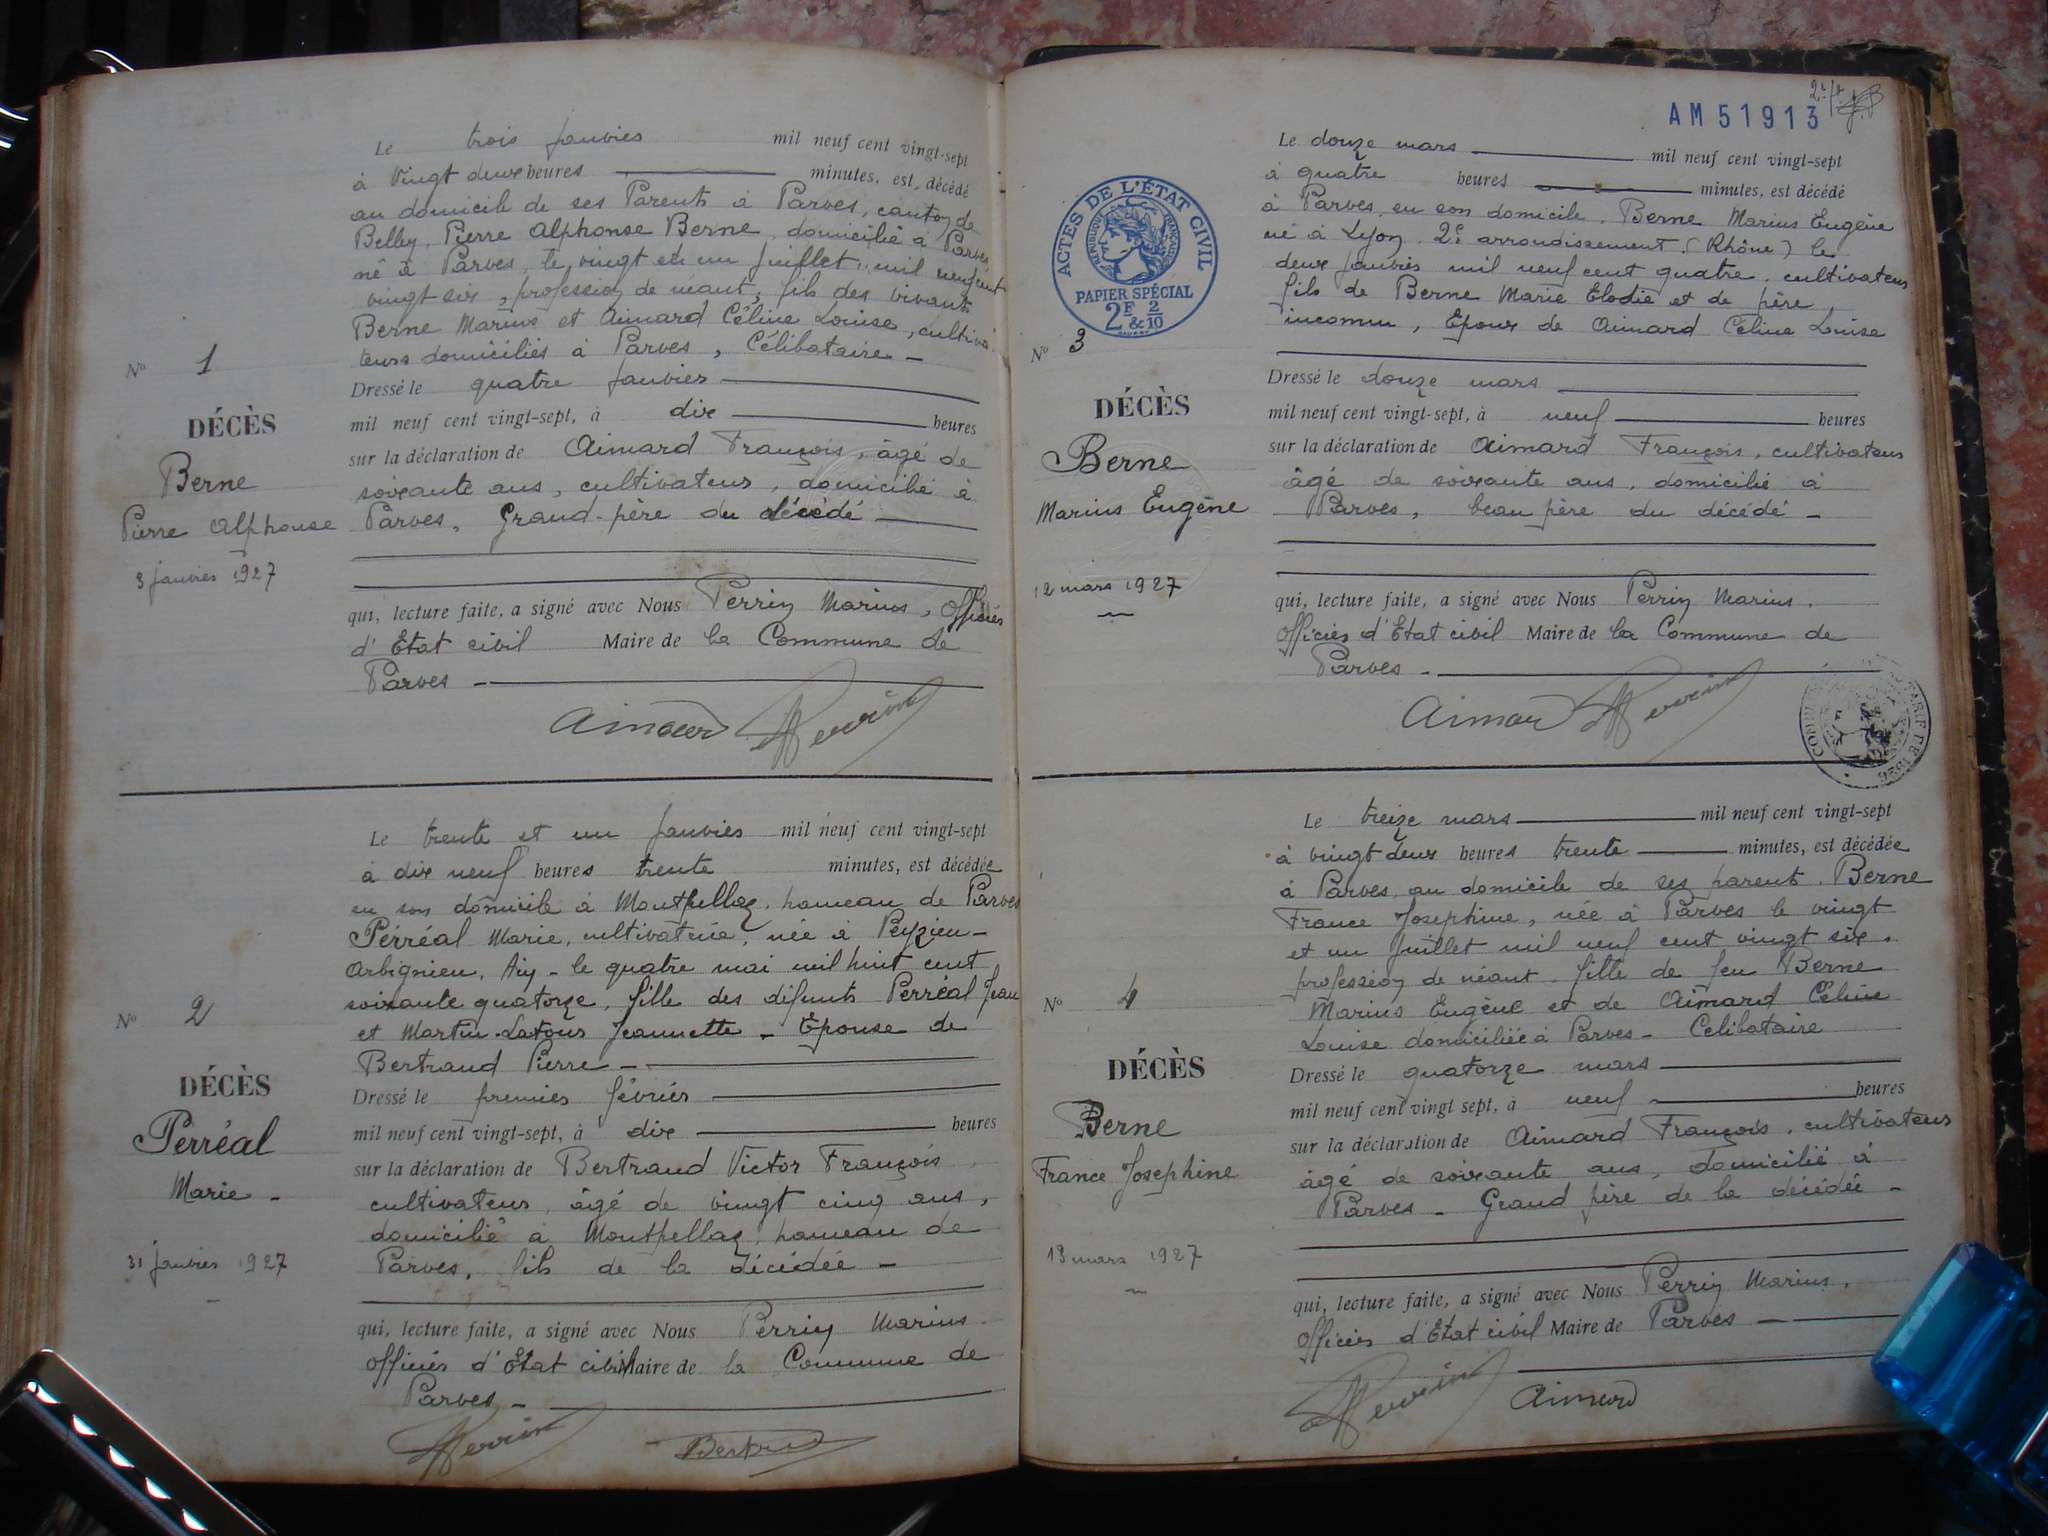 Le trois janvier mil neuf cent vingt-sept
à vingt deux heures minutes, est décédé
au domicile de ses Parents à Parves, canton de
Belley, Pierre Alphonse Berne, domicilié à Parves
né à Parves, le vingt et un juillet mil neuf cent
vingt six, profession de néant, fils des vivants
Berne Marius et Aimard Céline Louise, cultiva-
teurs domiciliés à Parves, Célibataire -
N° 1
Dressé le quatre janvier
mil neuf cent vingt-sept, à dix heures
DÉCÈS
sur la déclaration de Aimard François, âgé de
Berne
soixante ans, cultivateur, domicilié à
Pierre Alphonse
Parves, Grand-père du décédé
3 janvier 1927
qui, lecture faite, a signé avec Nous Perrin Marius, Officier
d'Etat civil Maire de la Commune de
Parves -
Aimard Perrin
Le trente et un janvier mil neuf cent vingt-sept
à dix neuf heures trente minutes, est décédée
en son domicile à Montpellaz, hameau de Parves
Perréal Marie, cultivatrice, née à Peyzieu-
Arbignieu, Ain - le quatre mai mil huit cent
soixante quatorze, fille des défunts Perréal Jean
N° 2
et Martin-Latour Jeannette - Epouse de
Bertrand Pierre -
DÉCÈS
Dressé le premier février
Perréal
mil neuf cent vingt-sept, à dix heures
sur la déclaration de Bertrand Victor François
Marie -
cultivateur, âgé de vingt cinq ans,
domicilié à Montpellaz, hameau de
31 janvier 1927
Parves, fils de la décédée -
qui, lecture faite, a signé avec Nous Perrin Marius
Officier d'Etat civil Maire de la Commune de
Parves -
Perrin Bertrand
AM 51913
Le douze mars mil neuf cent vingt-sept
à quatre heures minutes, est décédé
à Parves, en son domicile, Berne Marius Eugène
né à Lyon, 2e arrondissement (Rhône) le
deux janvier mil neuf cent quatre, cultivateur
fils de Berne Marie Elodie et de père
inconnu, Epoux de Aimard Céline Louise
ACTES DE L'ÉTAT CIVIL
RÉPUBLIQUE FRANÇAISE
PAPIER SPÉCIAL
2F & 2/10
N° 3
Dressé le douze mars
DÉCÈS
mil neuf cent vingt-sept, à neuf heures
sur la déclaration de Aimard François, cultivateur
Berne
âgé de soixante ans, domicilié à
Marius Eugène
Parves, beau père du décédé -
12 mars 1927
qui, lecture faite, a signé avec Nous Perrin Marius,
Officier d'Etat civil Maire de la Commune de
Parves -
Aimard Perrin
Le treize mars mil neuf cent vingt-sept
à vingt deux heures trente minutes, est décédée
à Parves, au domicile de ses parent, Berne
France Josephine, née à Parves le vingt
et un Juillet mil neuf cent vingt six,
profession de néant, fille de feu Berne
N° 4
Marius Eugène et de Aimard Céline
Louise domiciliée à Parves - Celibataire
DÉCÈS
Dressé le quatorze mars
mil neuf cent vingt sept, à neuf heures
Berne
sur la déclaration de Aimard François, cultivateur
France Josephine
âgé de soixante ans, domicilié à
Parves - Grand père de la décédée -
13 mars 1927
qui, lecture faite, a signé avec Nous Perrin Marius,
Officier d'Etat civil Maire de Parves -
Perrin Aimard